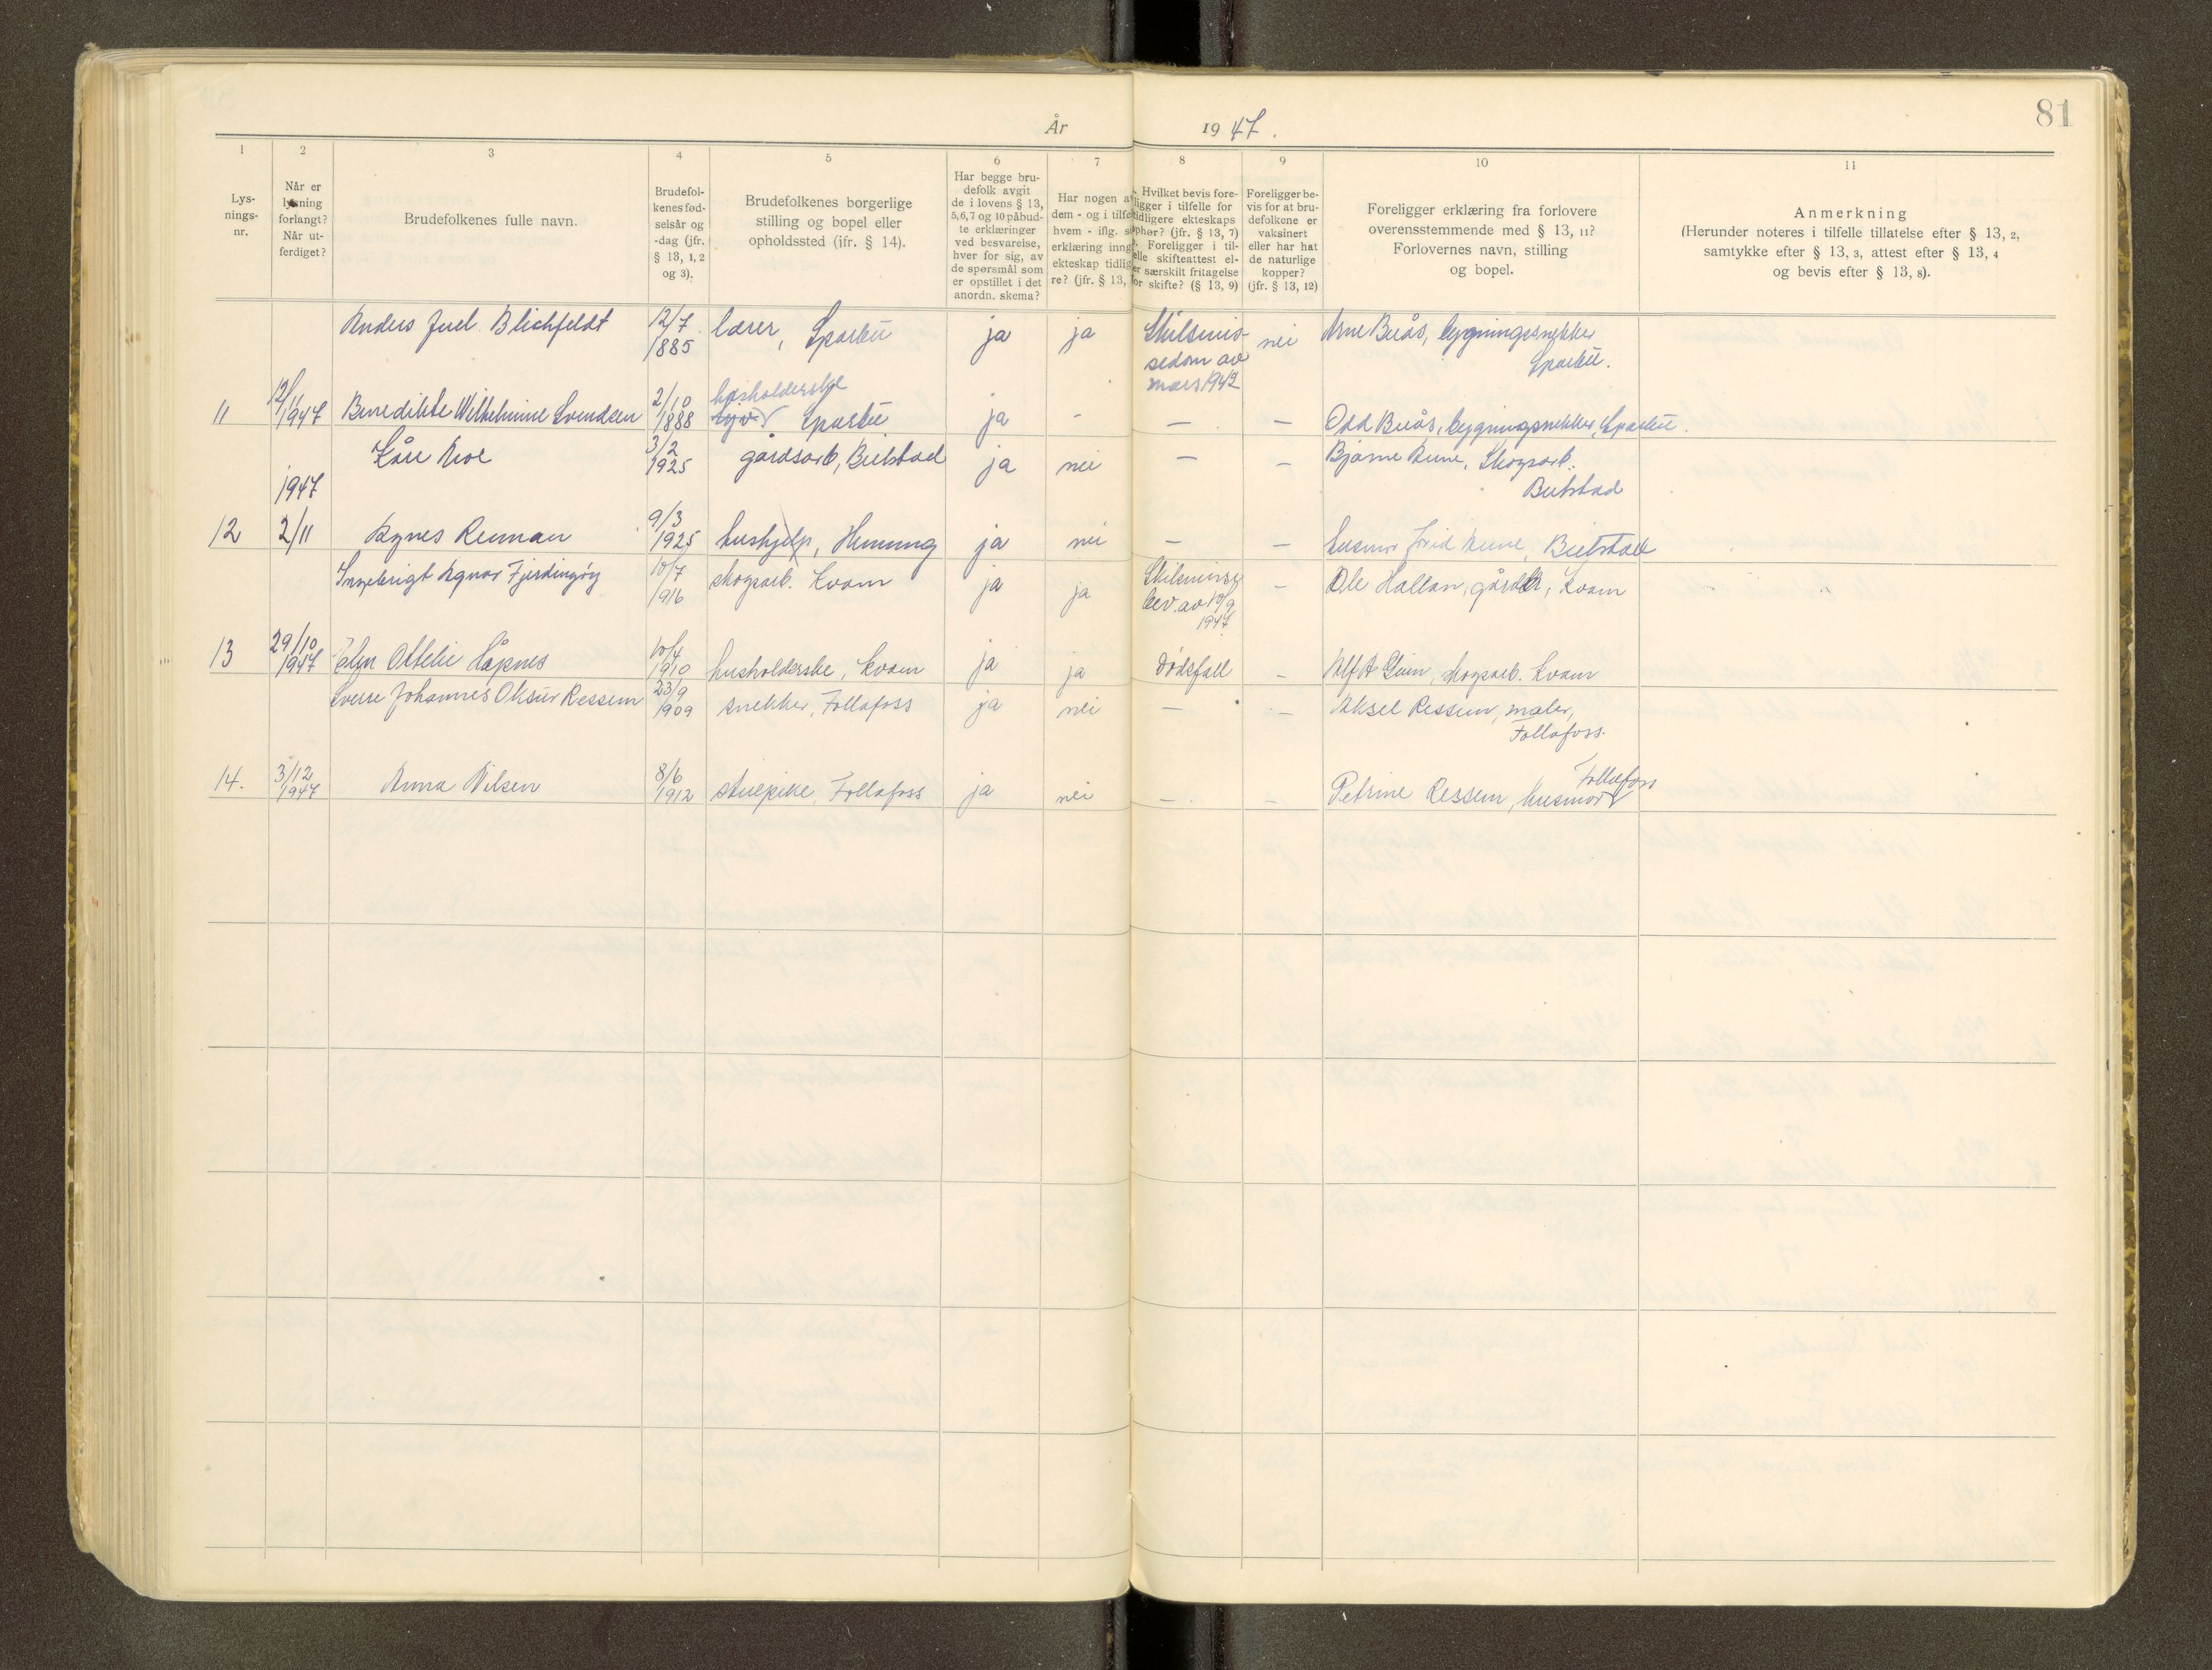 81
År 1947.
1 2 3 4 5 6 7 8 9 10 11
Lys-
nings-
nr.
Når er
lysning
forlangt?
Når ut-
ferdiget?
Brudefolkenes fulle navn.
Brudefol-
kenes fød-
selsår og
-dag (jfr.
§ 13, 1, 2
og 3).
Brudefolkenes borgerlige
stilling og bopel eller
opholdssted (jfr. § 14).
Har begge bru-
defolk avgit
de i lovens § 13,
5, 6, 7 og 10 påbud-
te erklæringer
ved besvarelse,
hver for sig, av
de spørsmål som
er opstillet i det
anordn. skema?
Har nogen a
dem - og i tilfe
hvem - iflg. s
erklæring inng
ekteskap tidlig
re? (jfr. § 13,
Hvilket bevis fore-
ligger i tilfelle for
tidligere ekteskaps
ophør? (jfr. § 13, 7)
Foreligger i til-
elle skifteattest el-
er særskilt fritagelse
for skifte? (§ 13, 9)
Foreligger be-
vis for at bru-
defolkene er
vaksinert
eller har hat
de naturlige
kopper?
(jfr. § 13, 12)
Foreligger erklæring fra forlovere
overensstemmende med § 13, 11?
Forlovernes navn, stilling
og bopel.
Anmerkning
(Herunder noteres i tilfelle tillatelse efter § 13, 2,
samtykke efter § 13, 3, attest efter § 13, 4
og bevis efter § 13, 8).
Anders Juel Blichfeldt 12/7 1885 lærer, Sparbu ja ja Skilsmis-
sedom av
mars 1942 nei Arne Buås, bygningssnekker
Sparbu.
11 12/11 1947 Benedikte Wilhelmine Svendsen 2/10 1888 husholderske
Sparbu ja - — — Odd Buås, bygningssnekker, Sparbu.
Kåre Moe 3/2 1925 gårdsarb, Beitstad ja nei — — Bjarne Aune, Skogsarb.
Beitstad
12 1947 2/11 Agnes Reinan 9/3 1925 hushjelp, Henning ja nei — — husmor Aune, Beitstad
Ingebrigt Agnar Fjerdingøy 10/7 1916 skogsarb. Kvam ja ja Skilsmisse
bev. av 10/9
1947 — Ole Hallan, gårdbr, Kvam
13 29/10 1947 Ottelie Håpnes 10/4 1910 husholderske, Kvam ja ja Dødsfall — Alf skogsarb. Kvam
Sverre Johannes Ressem 23/9 1909 snekker, Follafoss ja nei — — Aksel Ressem, maler,
Follafoss.
14. 3/12 1947 Anna Nilsen 8/6 1912 stuepike, Follafoss ja nei — — Petrine Ressem, husmor Follafoss